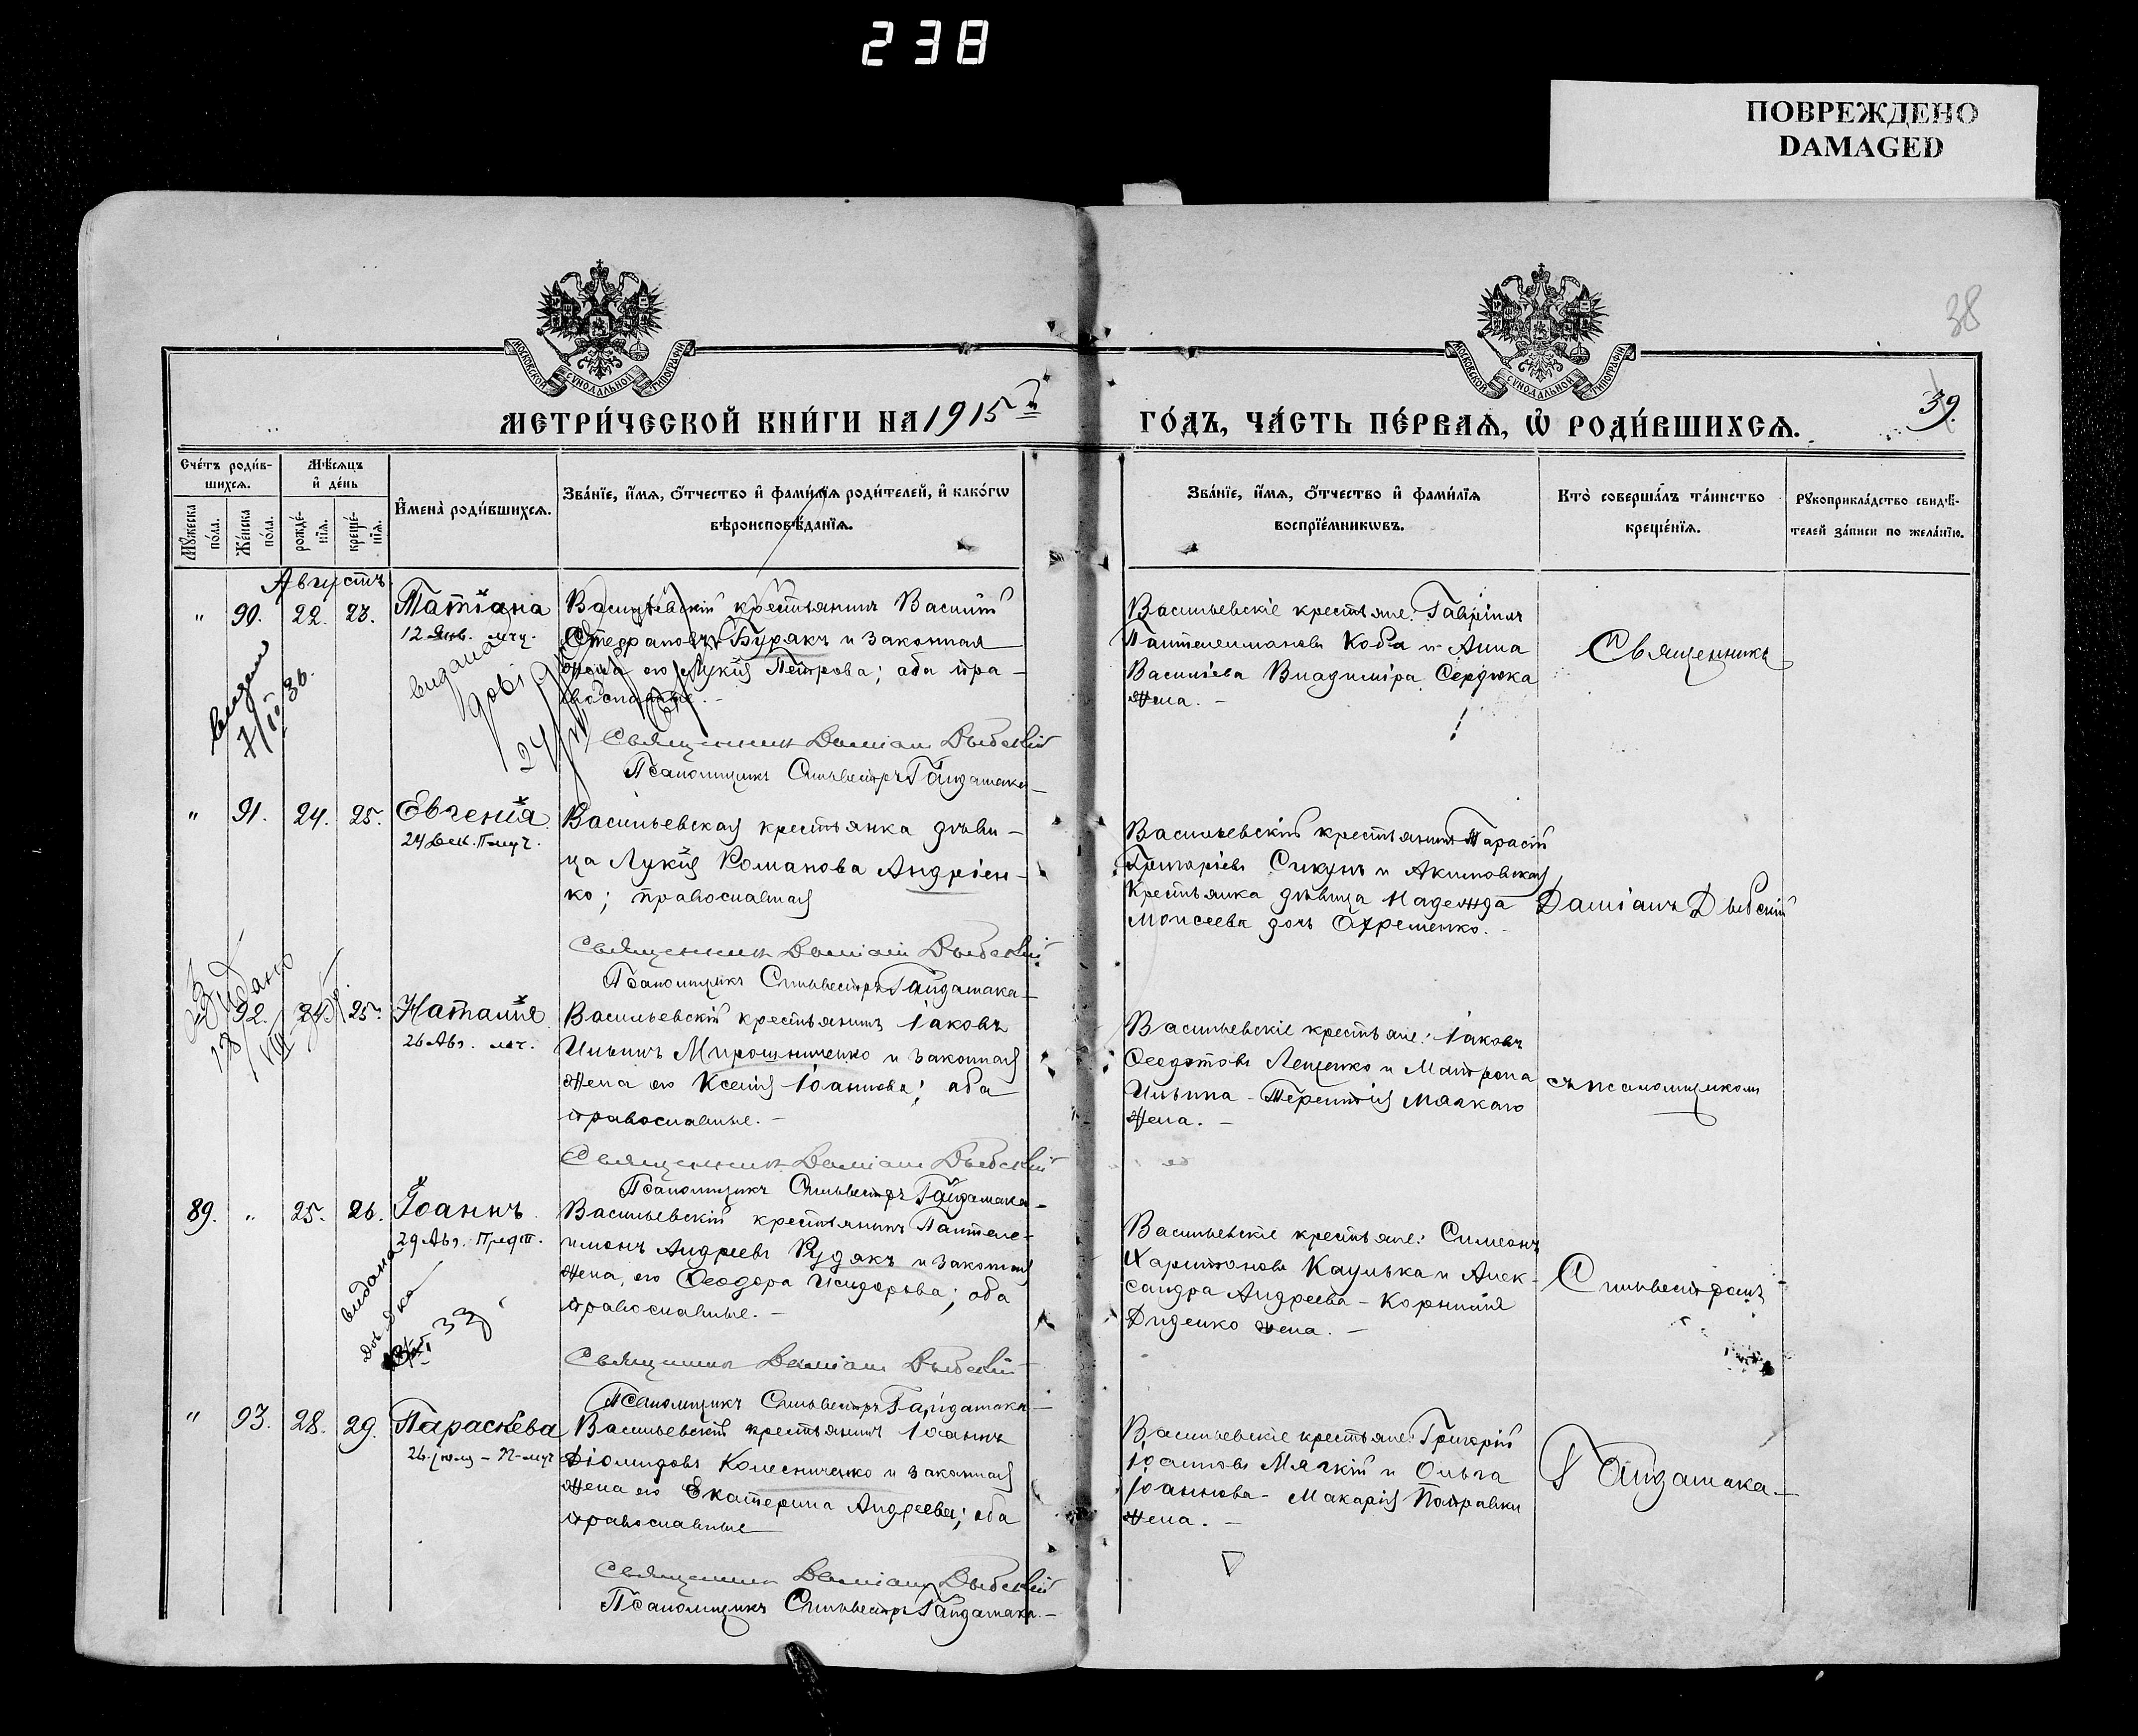 238
ПОВРЕЖДЕНО
DAMAGED
38
МОСКОВСКОЙ СУНОДАЛЬНОЙ ТИПОГРАФІИ
МОСКОВСКОЙ СУНОДАЛЬНОЙ ТИПОГРАФІИ
МЕТРИ́ЧЕСКОЙ КНИ́ГИ НА 1915 й
ГО́ДЪ, ЧА́СТЬ ПЕ́РВАѦ, Ѡ РОДИ́ВШИХСѦ.
39.
Сче́тъ роди́в-
шихсѧ.
Мѣ́сѧцъ
и҆ де́нь
Мꙋ́жеска
по́ла.
Же́нска
по́ла.
рожде́-
нїѧ.
креще́-
нїѧ.
И҆мена̀ роди́вшихсѧ.
Зва́нїе, и҆́мѧ, ѻ҆́тчество и҆ фами́лїѧ роди́телей, и҆ како́гѡ
вѣроисповѣ́данїѧ.
Зва́нїе, и҆́мѧ, ѻ҆́тчество и҆ фами́лїѧ
воспрїе́мникѡвъ.
Кто̀ соверша́лъ та́инство
креще́нїѧ.
Рꙋкоприкла́дство свидѣ́-
телей за́писи по жела́нїю.
Августъ
" 90. 22. 23. Татіана
12 Янв. мчц.
Васильевскій крестьянинъ Василій
Стефановъ Бурякъ и законная
жена его Лукія Петрова; оба пра-
вославные. -
Священникъ Даміанъ Дыбскій
Псаломщикъ Сильвестръ Гайдамака
Васильевскіе крестьяне: Гавріилъ
Пантелеимоновъ Коба и Анна
Василіева Владиміра Сердюка
жена. -
Священникъ
выдана
видана
" 91. 24. 25. Евгенія
24 Дек. П-муч.
Васильевская крестьянка дѣви-
ца Лукія Романова Андріен-
ко; православная
Священникъ Даміанъ Дыбскій
Псаломщикъ Сильвестръ Гайдамака
Васильевскій крестьянинъ Тарасій
Григоріевъ Сикунъ и Акимовская
крестьянка дѣвица Надежда
Моисеева дочь Охременко.
Даміанъ Дыбскій
" 92. 24. 25. Наталія
26 Авг. мч.
Васильевскій крестьянинъ Іаковъ
Ильинъ Мирошниченко и законная
жена его Ксенія Іоаннова; оба
православные. -
Священникъ Даміанъ Дыбскій
Псаломщикъ Сильвестръ Гайдамака
Васильевскіе крестьяне: Іаковъ
Ѳеодотовъ Лещенко и Матрона
Ильина - Терентія Мялкаго
жена. -
съ псаломщикомъ
89. " 25. 26. Іоаннъ
29 Авг. Предт.
Васильевскій крестьянинъ Пантеле-
имонъ Андреевъ Рудякъ и законная
жена его Ѳеодора Исидорова; оба
православные. -
Священникъ Даміанъ Дыбскій
Псаломщикъ Сильвестръ Гайдамака
Васильевскіе крестьяне: Симеонъ
Харитоновъ Каулька и Алек-
сандра Андреева - Корнилія
Диденко жена. -
Сильвестромъ
видана
" 93. 28. 29. Параскева
26 Іюля - П-муч
Васильевскій крестьянинъ Іоаннъ
Діомидовъ Колесниченко и законная
жена его Екатерина Андреева; оба
православные
Священникъ Даміанъ Дыбскій
Псаломщикъ Сильвестръ Гайдамака. -
Васильевскіе крестьяне: Григорій
Іоанновъ Мялкій и Ольга
Іоаннова - Макарія Поправки
жена. -
Гайдамака. -